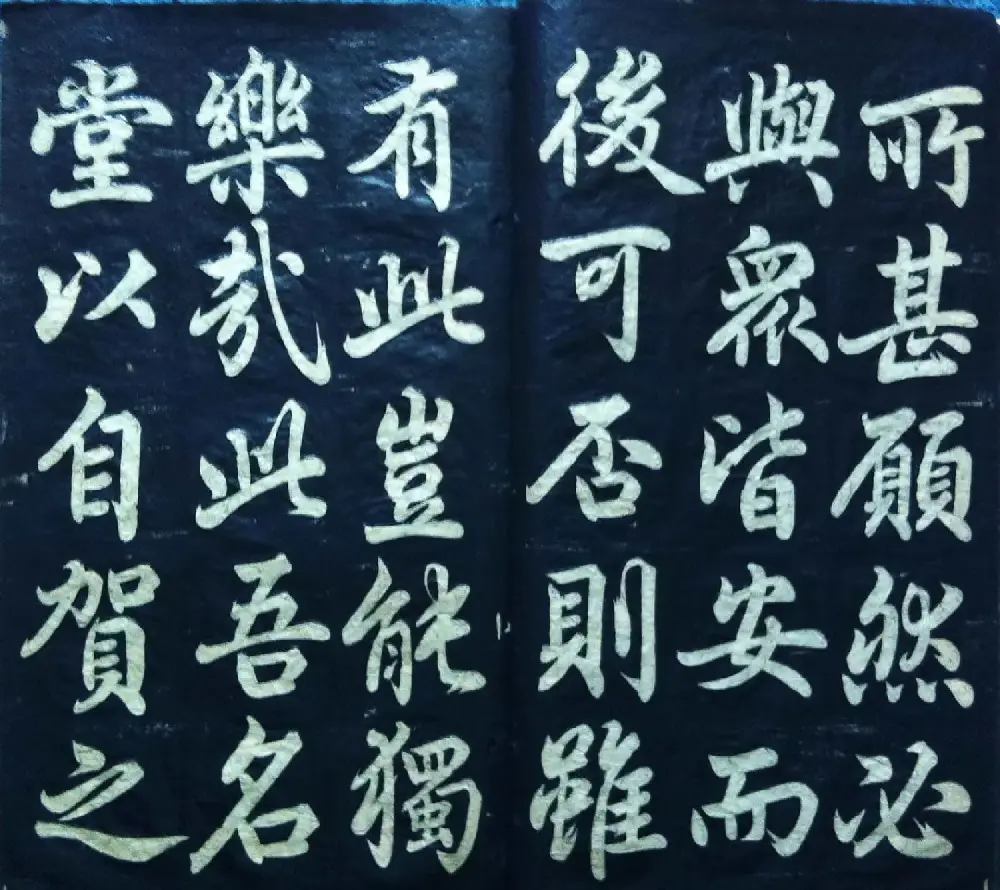 所甚願然必
與眾皆安而
後可否則雖
有此豈能獨
樂哉此吾名
堂以自賀之